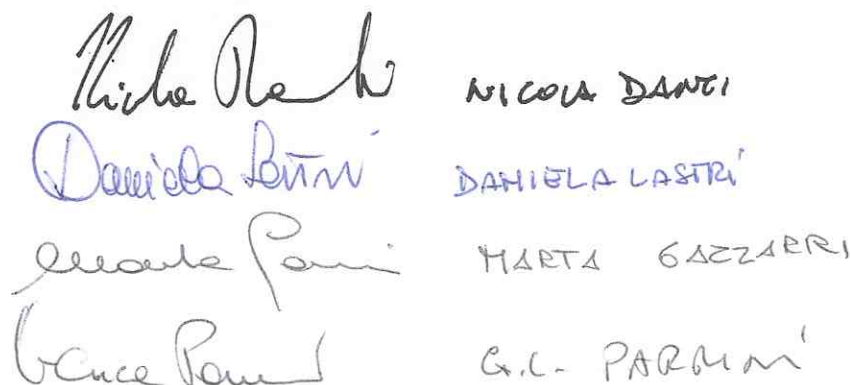 Nicola Danti NICOLA DANTI
Daniela Lastri DANIELA LASTRI
Marta Gazzarri MARTA GAZZARRI
G.L. PARRINI